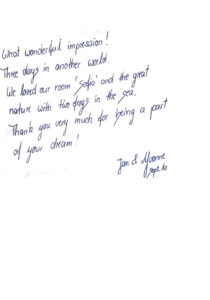 What wonderful impression!
Three days in another world.
We loved our room 'Sofia' and the great
nature with two dogs in the sea.
Thank you very much for being a part
of your dream!
Jan & Yvonne
Sept. 10